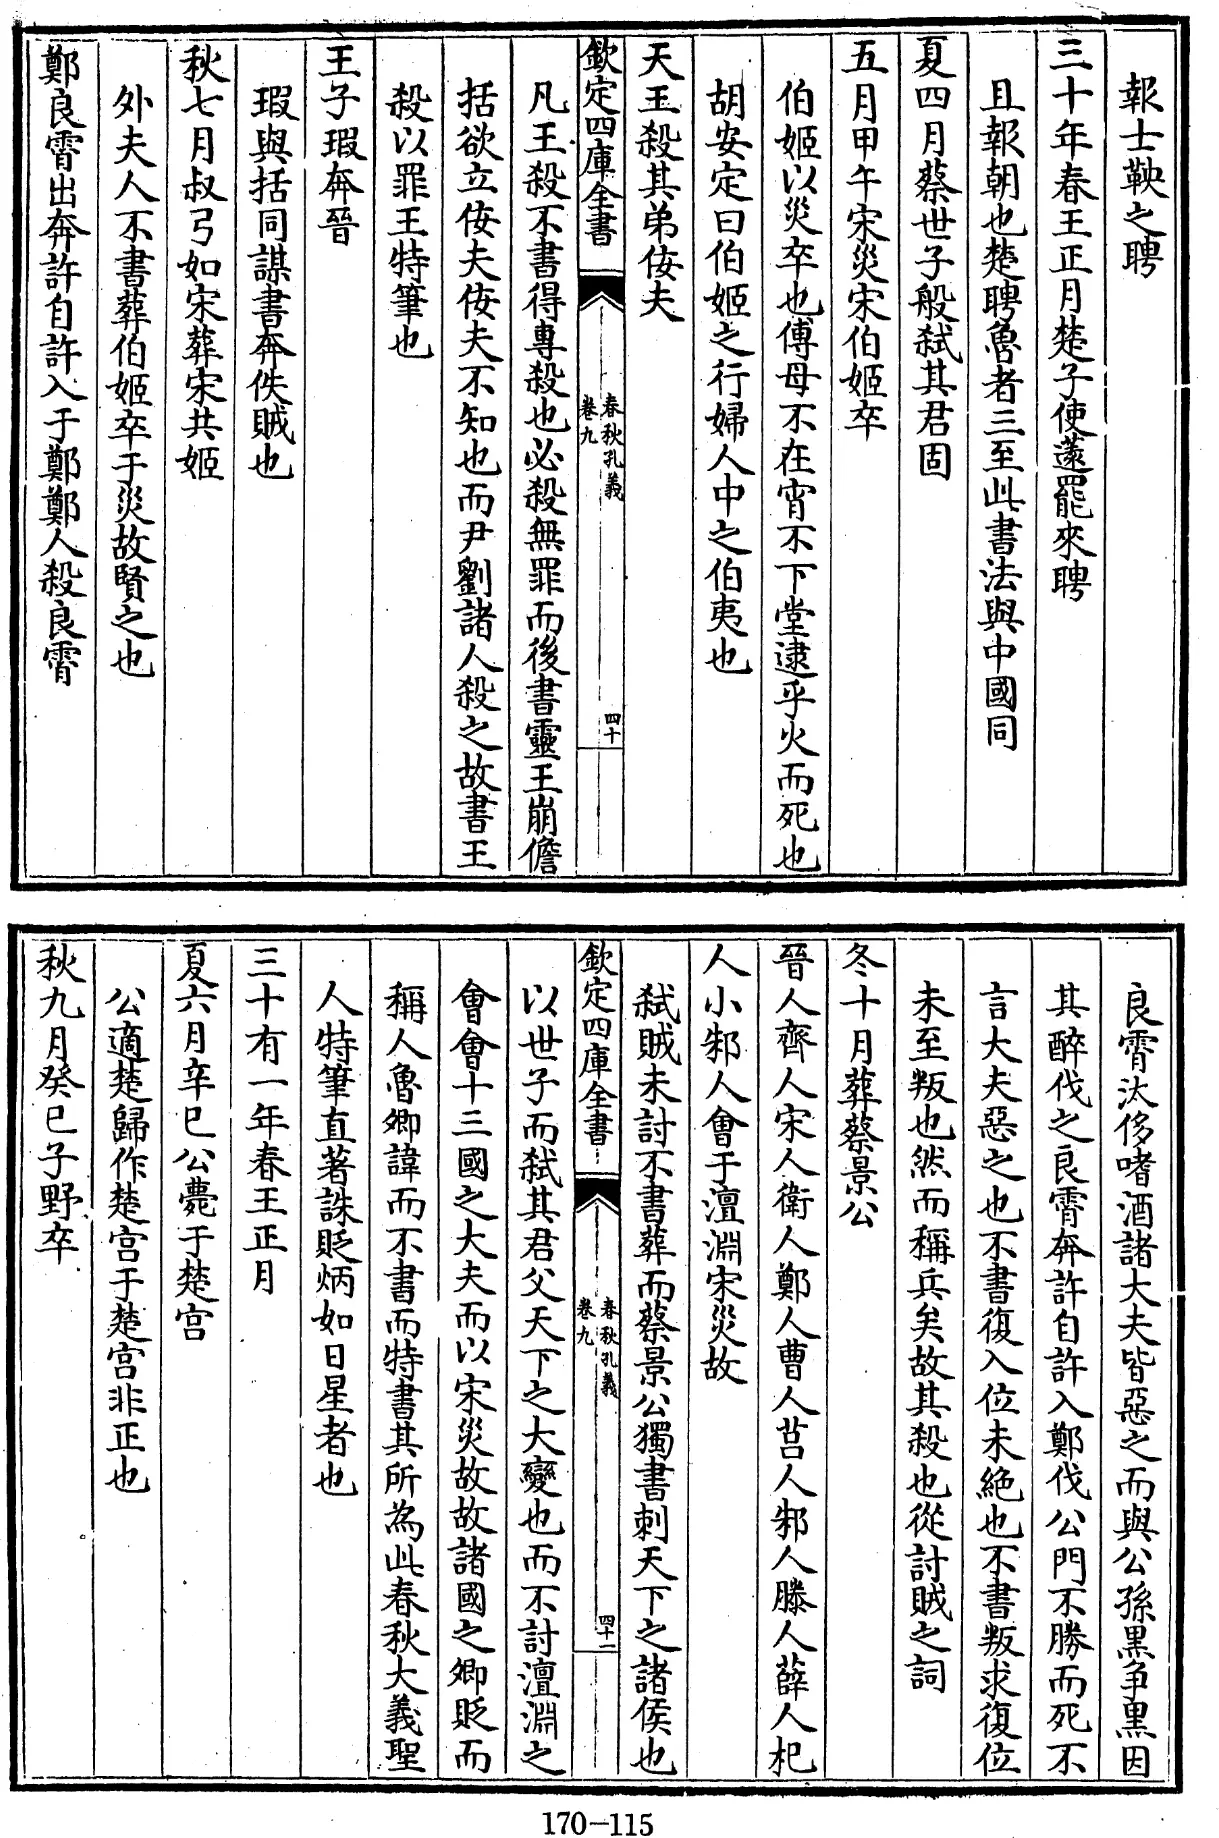 報士鞅之聘
三十年春王正月楚子使薳罷來聘
且報朝也楚聘魯者三至此書法與中國同
夏四月蔡世子般弑其君固
五月甲午宋災宋伯姬卒
伯姬以災卒也傅母不在宵不下堂逮乎火而死也
胡安定曰伯姬之行婦人中之伯夷也
天王殺其弟佞夫
欽定四庫全書
春秋孔義
卷九
四十
凡王殺不書得專殺也必殺無罪而後書靈王崩儋
括欲立佞夫佞夫不知也而尹劉諸人殺之故書王
殺以罪王特筆也
王子瑕奔晉
瑕與括同謀書奔佚賊也
秋七月叔弓如宋葬宋共姬
外夫人不書葬伯姬卒于災故賢之也
鄭良霄出奔許自許入于鄭鄭人殺良霄
良霄汰侈嗜酒諸大夫皆惡之而與公孫黑争黑因
其醉伐之良霄奔許自許入鄭伐公門不勝而死不
言大夫惡之也不書復入位未絶也不書叛求復位
未至叛也然而稱兵矣故其殺也從討賊之詞
冬十月葬蔡景公
晉人齊人宋人衛人鄭人曹人莒人邾人滕人薛人杞
人小邾人會于澶淵宋災故
弑賊未討不書葬而蔡景公獨書刺天下之諸侯也
欽定四庫全書
春秋孔義
卷九
四十一
以世子而弑其君父天下之大變也而不討澶淵之
會會十三國之大夫而以宋災故故諸國之卿貶而
稱人魯卿諱而不書而特書其所為此春秋大義聖
人特筆直著誅貶炳如日星者也
三十有一年春王正月
夏六月辛巳公薨于楚宫
公適楚歸作楚宫于楚宫非正也
秋九月癸巳子野卒
170-115